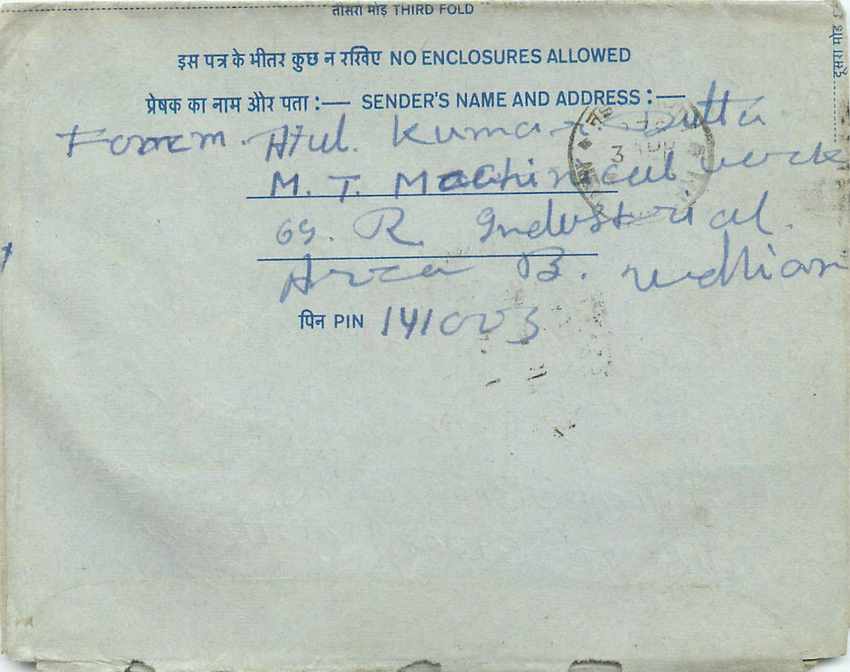 तीसरा मोड़ THIRD FOLD
दूसरा मोड़
इस पत्र के भीतर कुछ न रखिए NO ENCLOSURES ALLOWED
प्रेषक का नाम और पता :— SENDER'S NAME AND ADDRESS :—
Atul. Kumar Dutta
M. T. Machinical work
69. R. Industrial.
B.
पिन PIN 141003